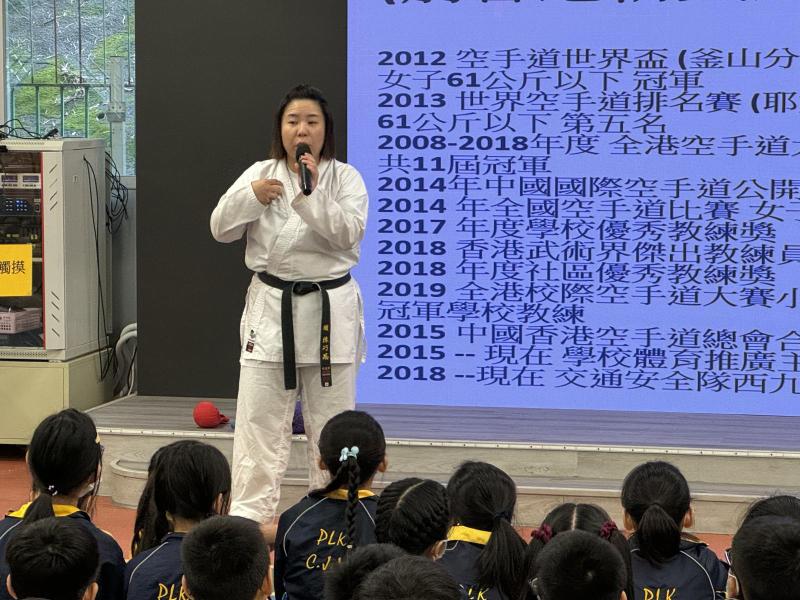 2012 空手道世界盃 (釜山分
女子61公斤以下 冠軍
2013 世界空手道排名賽 (耶
61公斤以下 第五名
2008-2018年度 全港空手道
共11屆冠軍
2014年中國國際空手道公開
2014 年全國空手道比賽 女子
2017 年度學校優秀教練獎
2018 香港武術界傑出教練員
2018 年度社區優秀教練獎
2019 全港校際空手道大賽小
冠軍學校教練
2015 中國香港空手道總會合
2015 -- 現在 學校體育推廣主
2018 --現在 交通安全隊西九
觸摸
PLK
PLK
C.J.
PLK
PLK